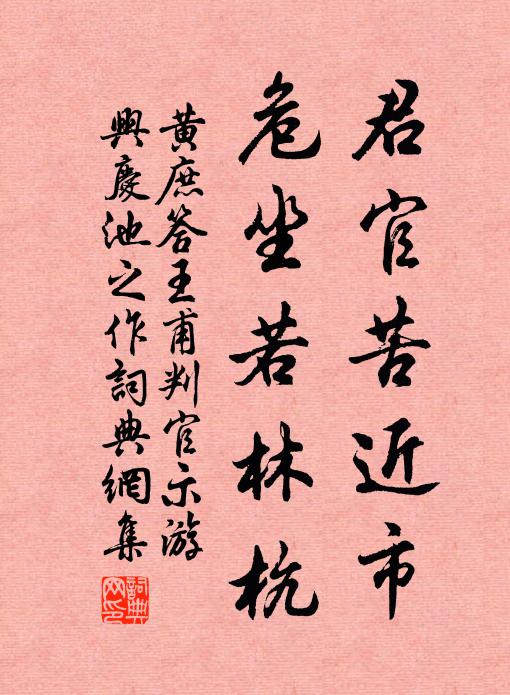 君官苦近市
危坐若林杌
黃庶答王甫判官示游
興慶池之作詞典網集
詞典網印